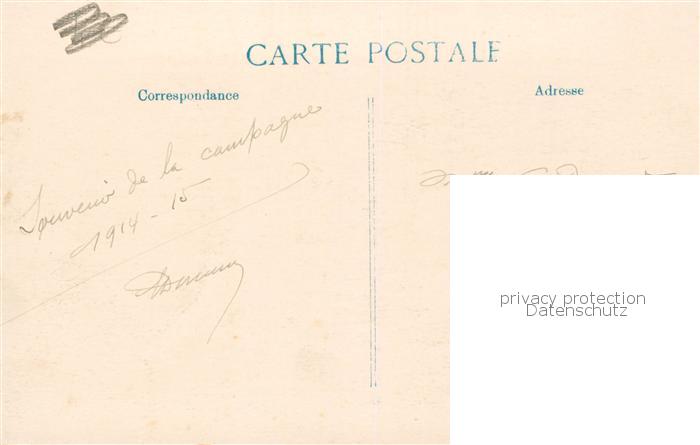 CARTE POSTALE
Correspondance
Adresse
Souvenir de la campagne
1914-15
privacy protection
Datenschutz